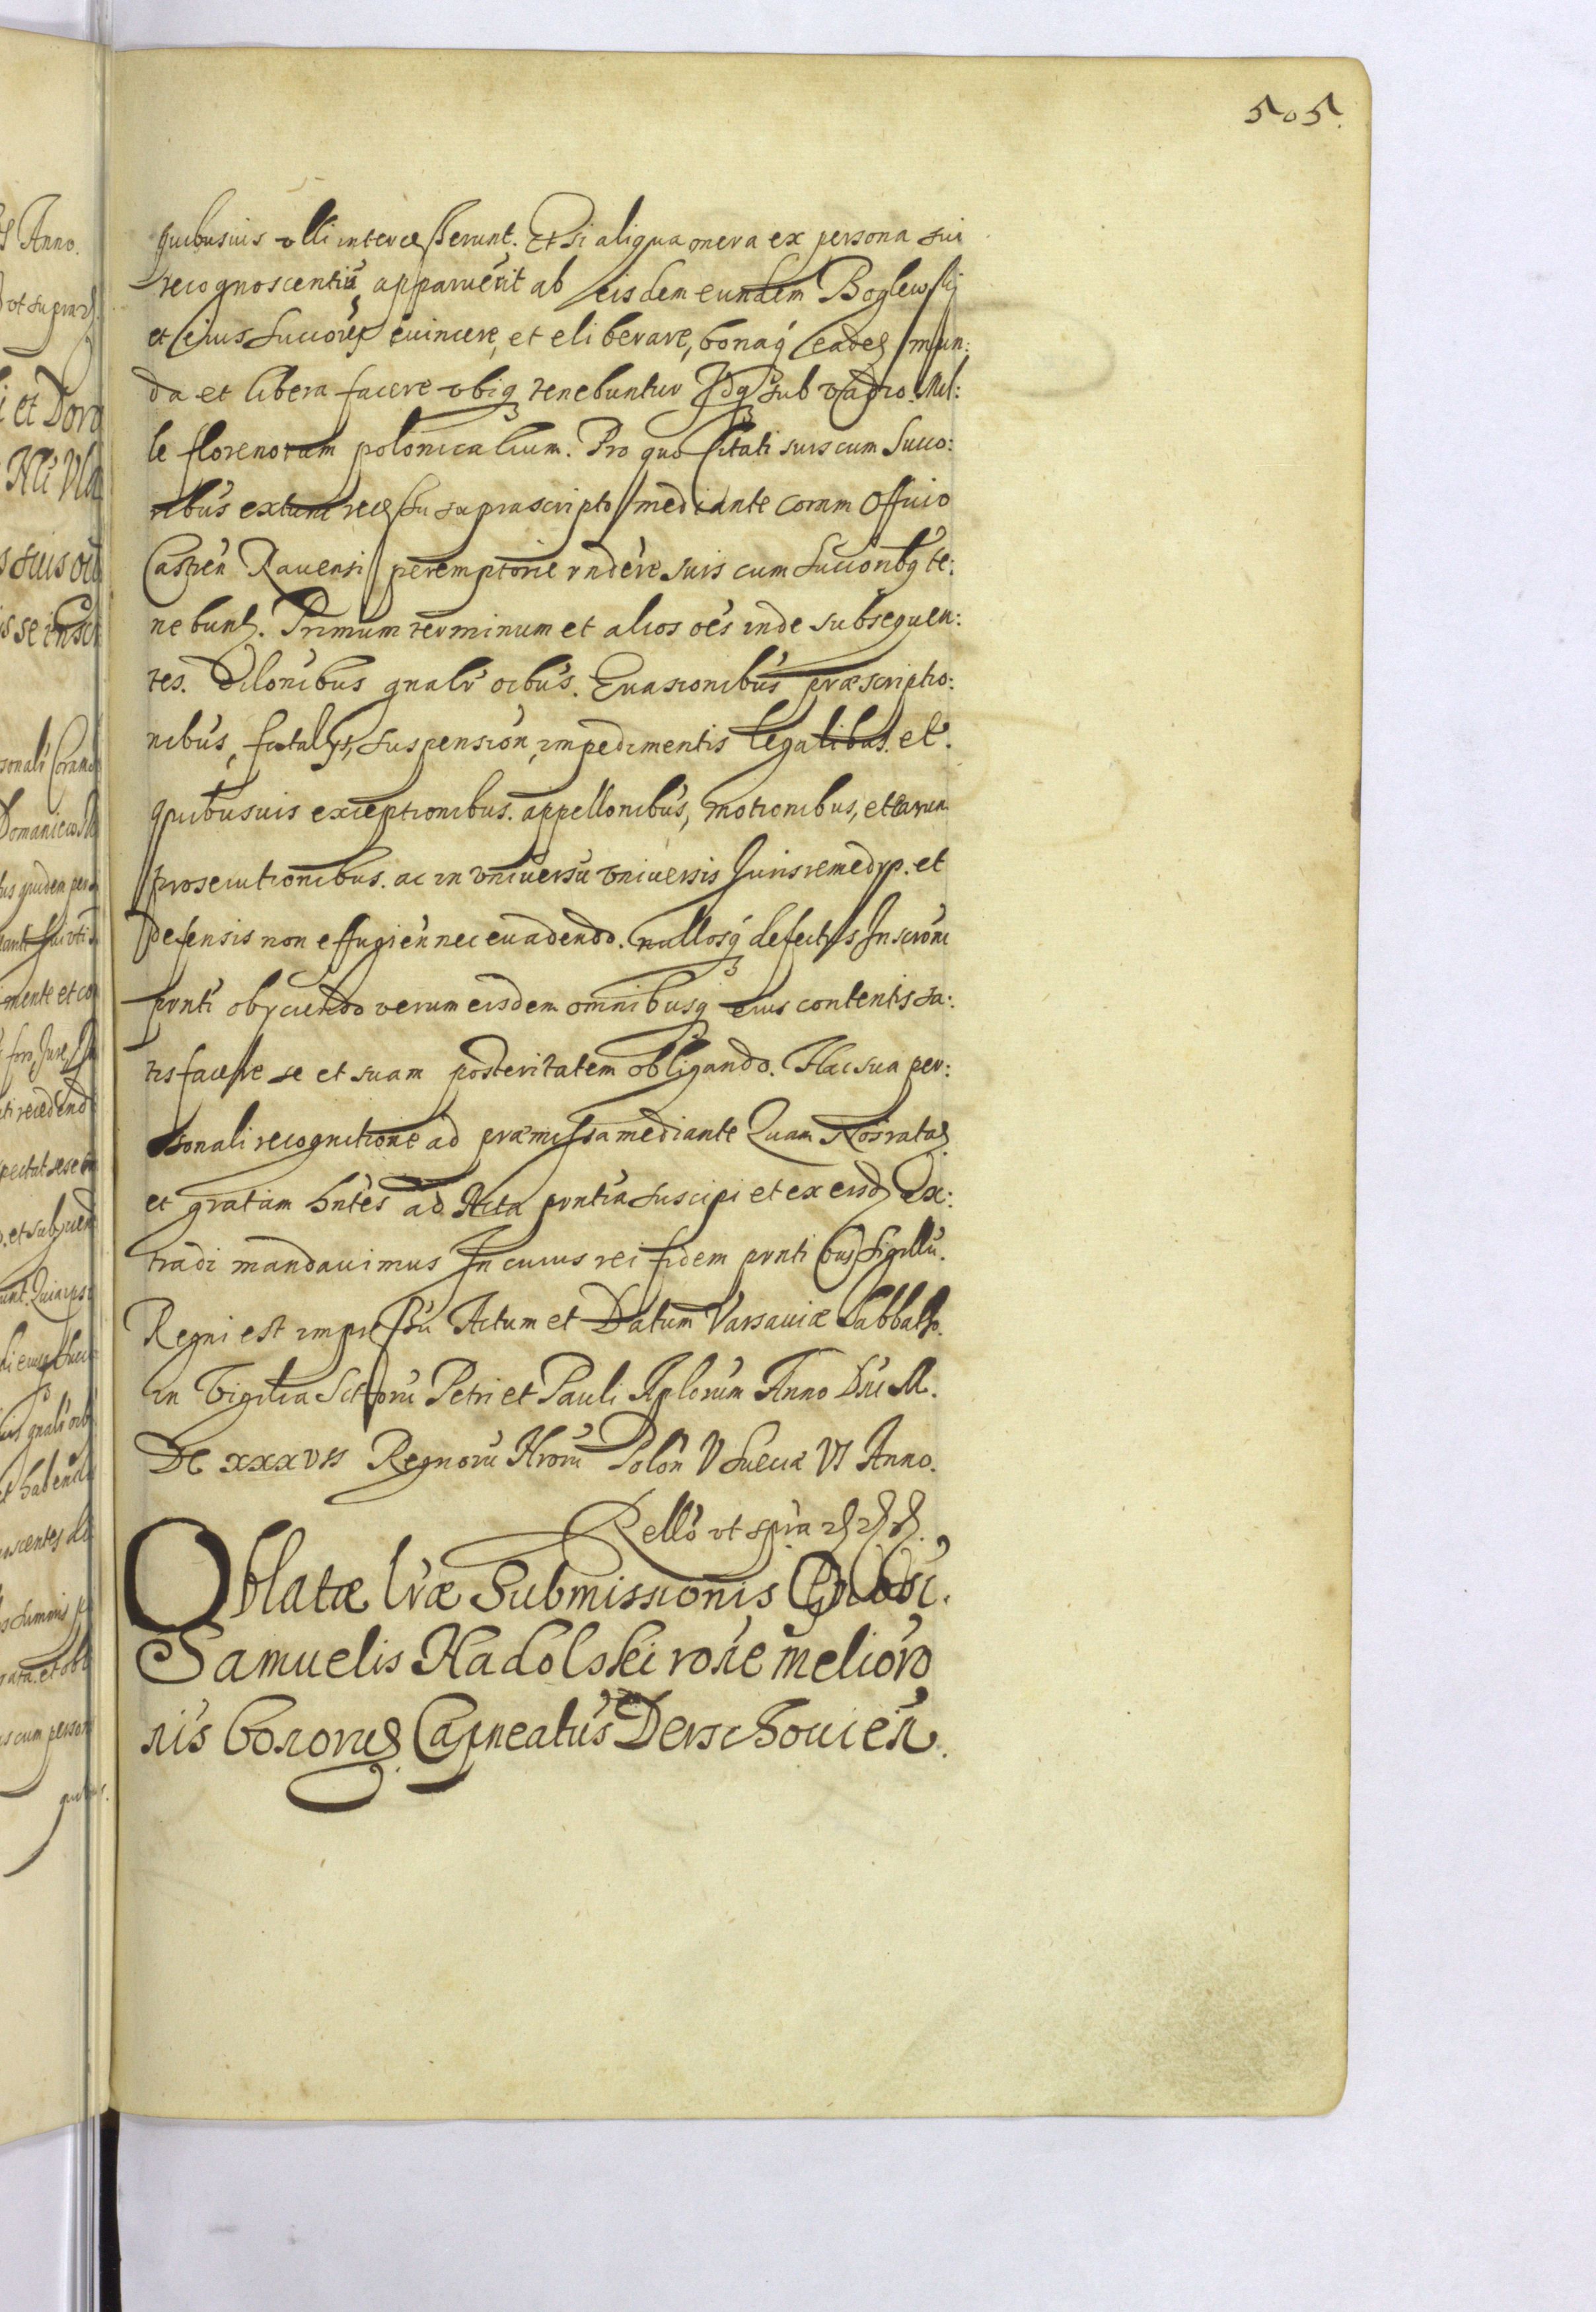 505.
quibusuis vlli intercesserunt. Et si aliqua onera ex persona sui
recognoscentiū apparuerit ab eisdem eundem Boglewskij
et eius Succores euincere, et eliberare, bonaq̨ eadeȝ mun:
da et libera facere vbiq̨ tenebuntur Idq̨ sub vadio. Mil:
le florenorum polonicalium. Pro quo citati suis cum Succo:
ribus extunc recessu suprascripto mediante coram Officio
Castreń Rauensi peremptorie rndere suis cum Succoribq̨ te:
nebunt. Primum terminum et alios oēs inde subsequen:
tes. Dilonibus gnalr oibus. Euasionibus præscriptio:
nibus, fatalijs, suspension, impedimentis legalibus. et.
quibusuis exceptionibus. appellonibus, motionibus, et earum
prosecutionibus. ac in vniuersū vniuersis Juris remedijs. et
defensis non effugień nec euadendo. nullosq̨ defectus Inscroni
prnti obijciendo verum eisdem omnibusq̨ eius contentis sa:
tisfacere se et suam posteritatem obligando. Hac sua per:
sonali recognitione ad præmissa mediante Quam Nos ratāȝ
et gratam hntes ad Acta prntia suscipi et ex eisdȝ Ex:
tradi mandauimus In cuius rei fidem prntibus Sigillū.
Regni est impressū Actum et Datum Varsauiæ Sabbatho.
in Vigilia Sctorū Petri et Pauli Aplorum Anno Dni M.
DC xxxvii Regnorū Nrorū Polon̄ V Sueciæ VI Anno.
Rello vt spra
Oblatæ lræ Submissionis
Samuelis Nadolski rone meliora
nis bonorū Capneatus Derschouień.